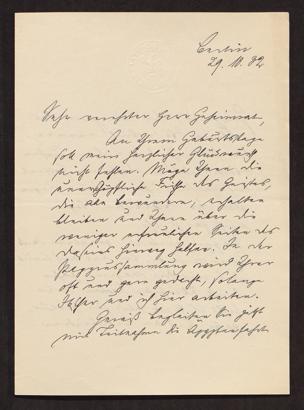 Berlin
29. 10. 82
Sehr verehrter Herr Geheimrat,
An Ihrem Geburtstage
soll mein herzlicher Glückwunsch
nicht fehlen. Möge Ihnen die
unerschöpfliche Frische des Geistes,
die alle bewundern, erhalten
bleiben und Ihnen über die
weniger erfreulichen Seiten des
Daseins hinweg helfen. In der
Papyrussammlung wird Ihrer
oft und gern gedacht, solange
und ich hier arbeiten.
Gewiß begleiten Sie jetzt
mit Teilnahme die Ägyptenfahrt